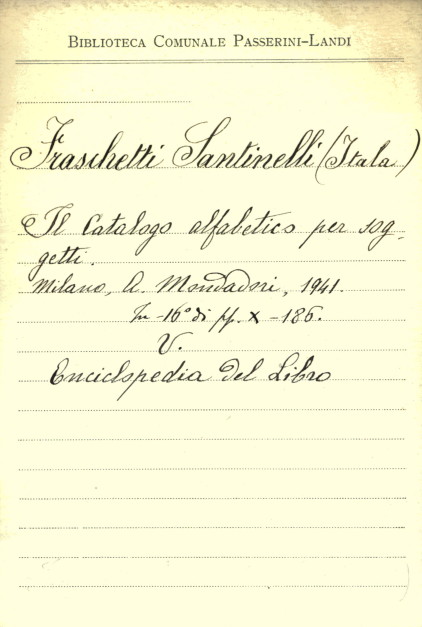 BIBLIOTECA COMUNALE PASSERINI-LANDI
Fraschetti Santinelli (Itala)
Il Catalogo alfabetico per sog-
getti.
Milano, A. Mondadori, 1941.
In-16° di pp. X-186.
V.
Enciclopedia del Libro